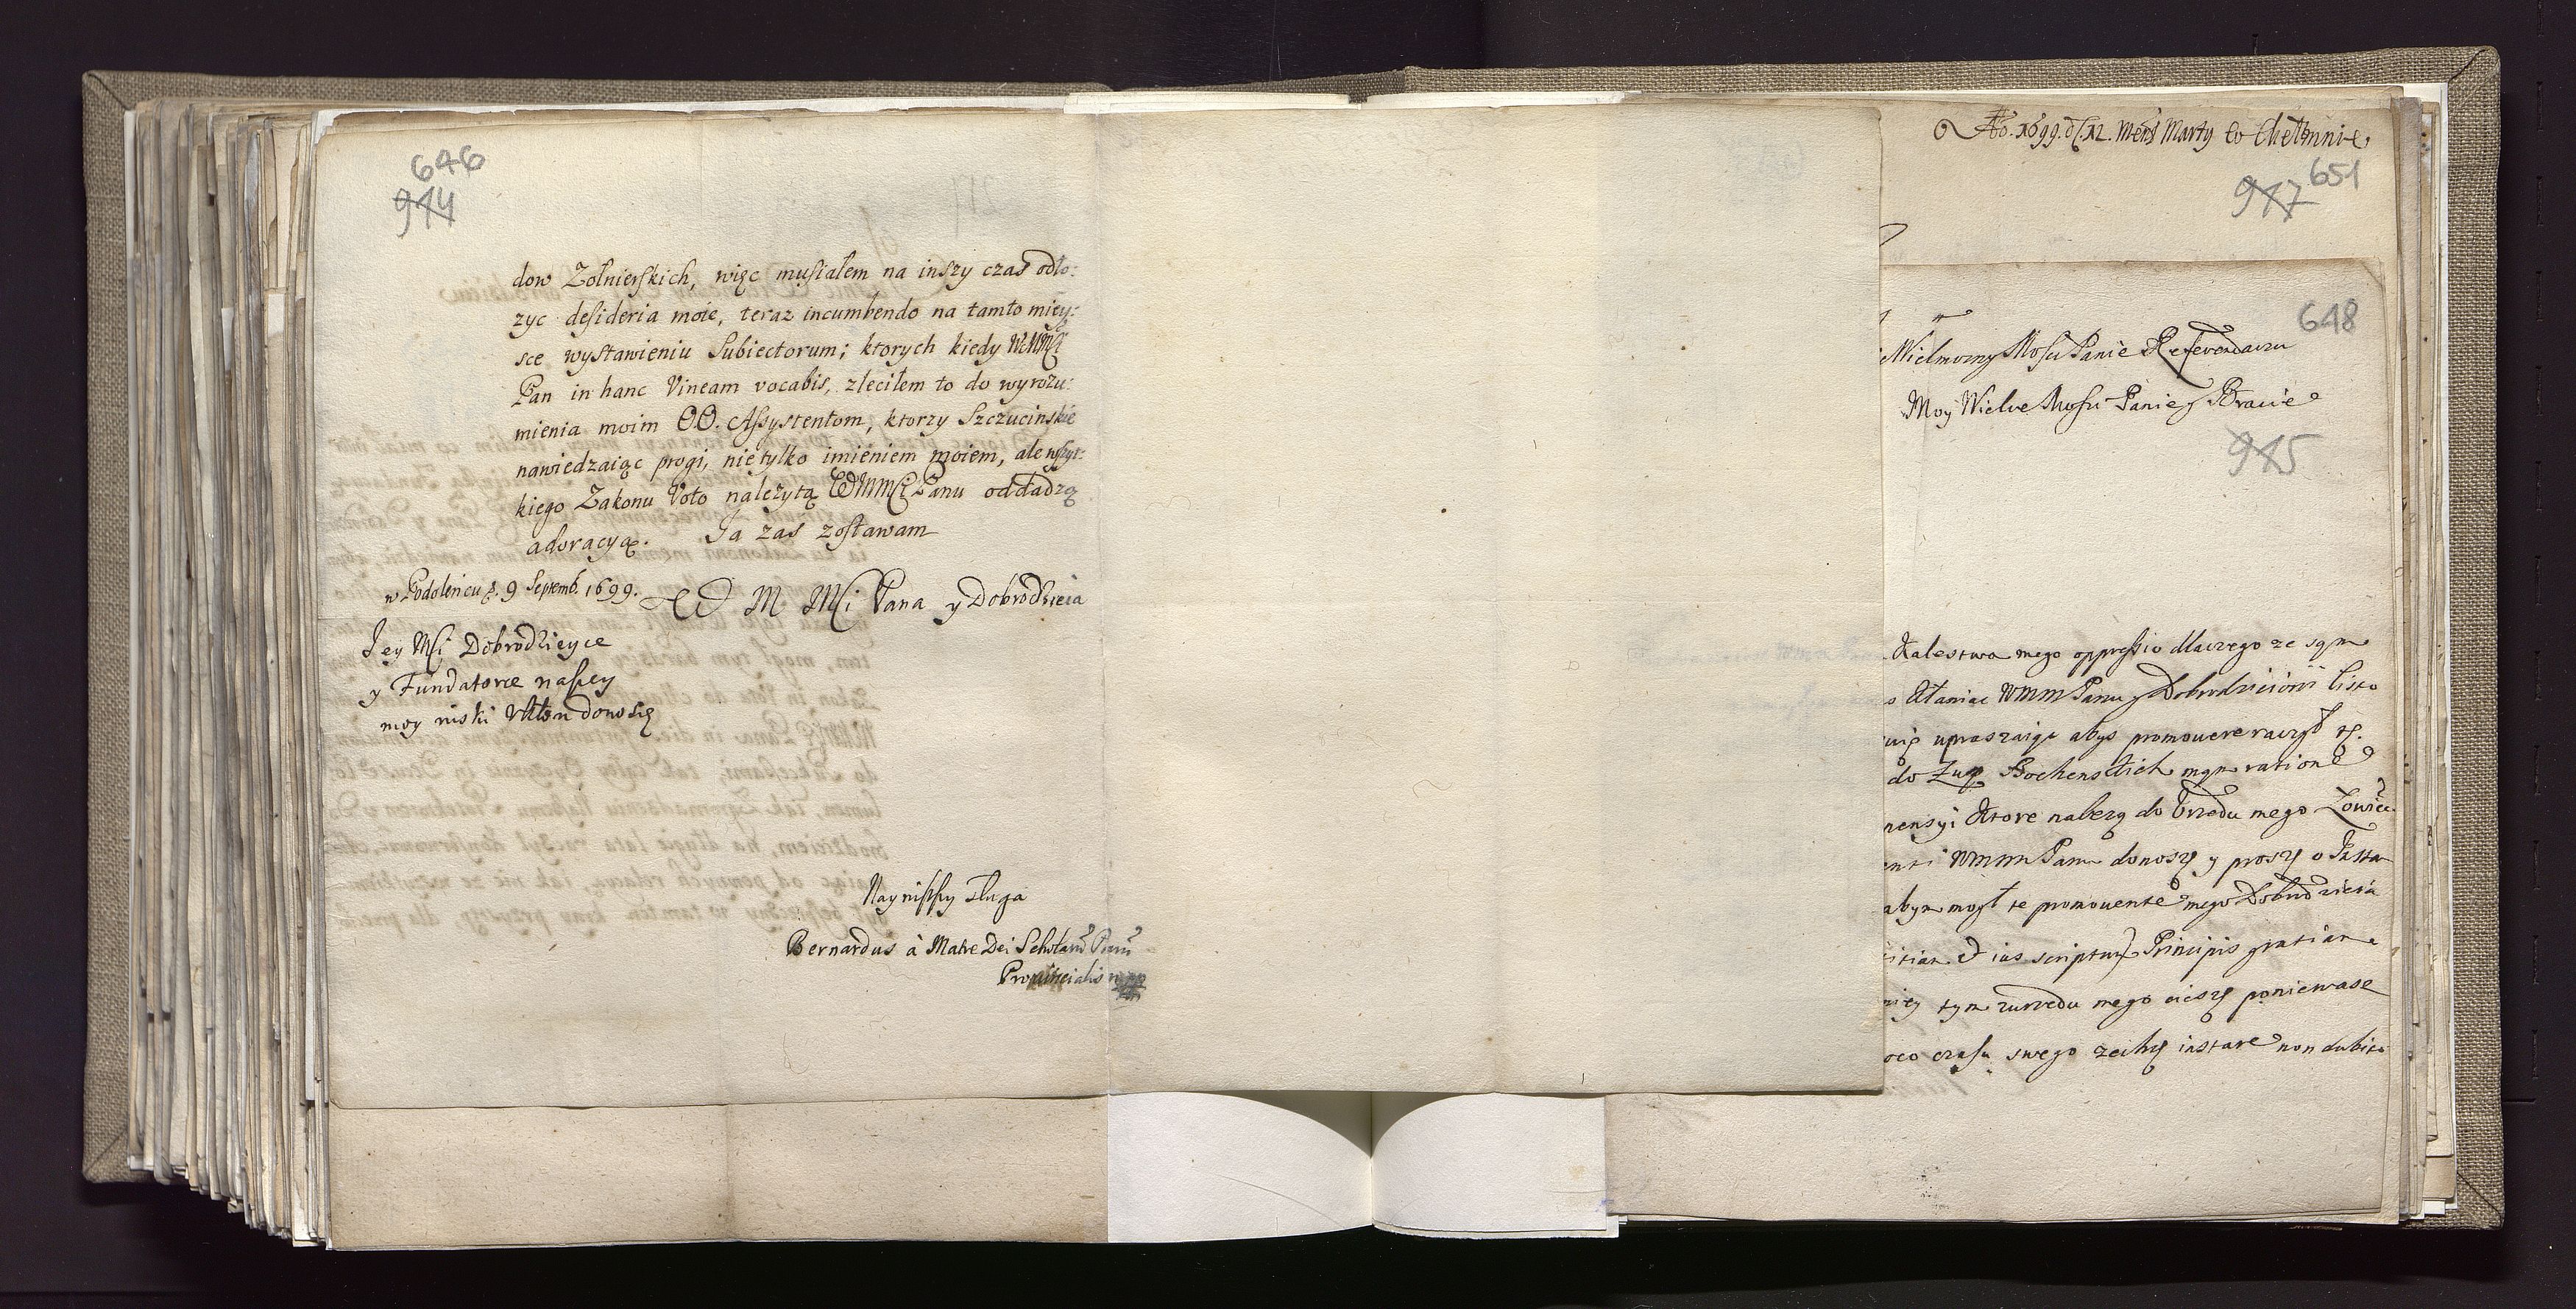 646
914
dow Zołnierskich, więc musiałem na inszy czas odło:
zyc desideria moie, teraz incumbendo na tamto miey:
sce wystawieniu Subiectorum; ktorych kiedy WMMCi
Pan in hanc Vineam vocabis, zleciłem to do wyrozu:
mienia moim OO. Assystentom, ktorzy Szczucinskie
nawiedzaiąc progi, nie tylko imieniem moiem, ale wszyt:
kiego Zakonu Voto należytą WMMCi Panu oddadzą
adoracyą. Ja zas zostawam
w Podolencu d. 9 Septemb. 1699.
W M MCi Pana y Dobrodzieia
Jey MCi Dobrodzieyce
y Fundatorce naszey
moy niski Ukłon donoszę
Nayniższy Sługa
Bernardus à Matre Dei Scholarum Piarum
Provincialis mpp
Ao. 1699. d. 12. Mens Marty w Chełmnie
651
917
648
Wielmozny Mosci Panie Referendarzu
Moy Wielce Mosci Panie y Bracie
915
Kalectwa mego oppressio dlaczego ze sam
WMM Panu y Dobrodzieiowi listo
upraszaiąc abys promovere raczył
do Zup Bochenskich mym ratione
pensyi ktore nalezą do Urzedu mego Łowiec
WMM Panu donoszę y proszę o Insta
abym mogł te promovente mego Dobrodzieia
et ius scriptum Principis gratiam
tym zurzedu mego cieszę poniewasz
czasu swego zechcę instare non dubito